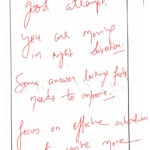 good attempt.
you are moving
in right direction.
Some answer lacking facts
needs to improve.
focus on effective articulation
more